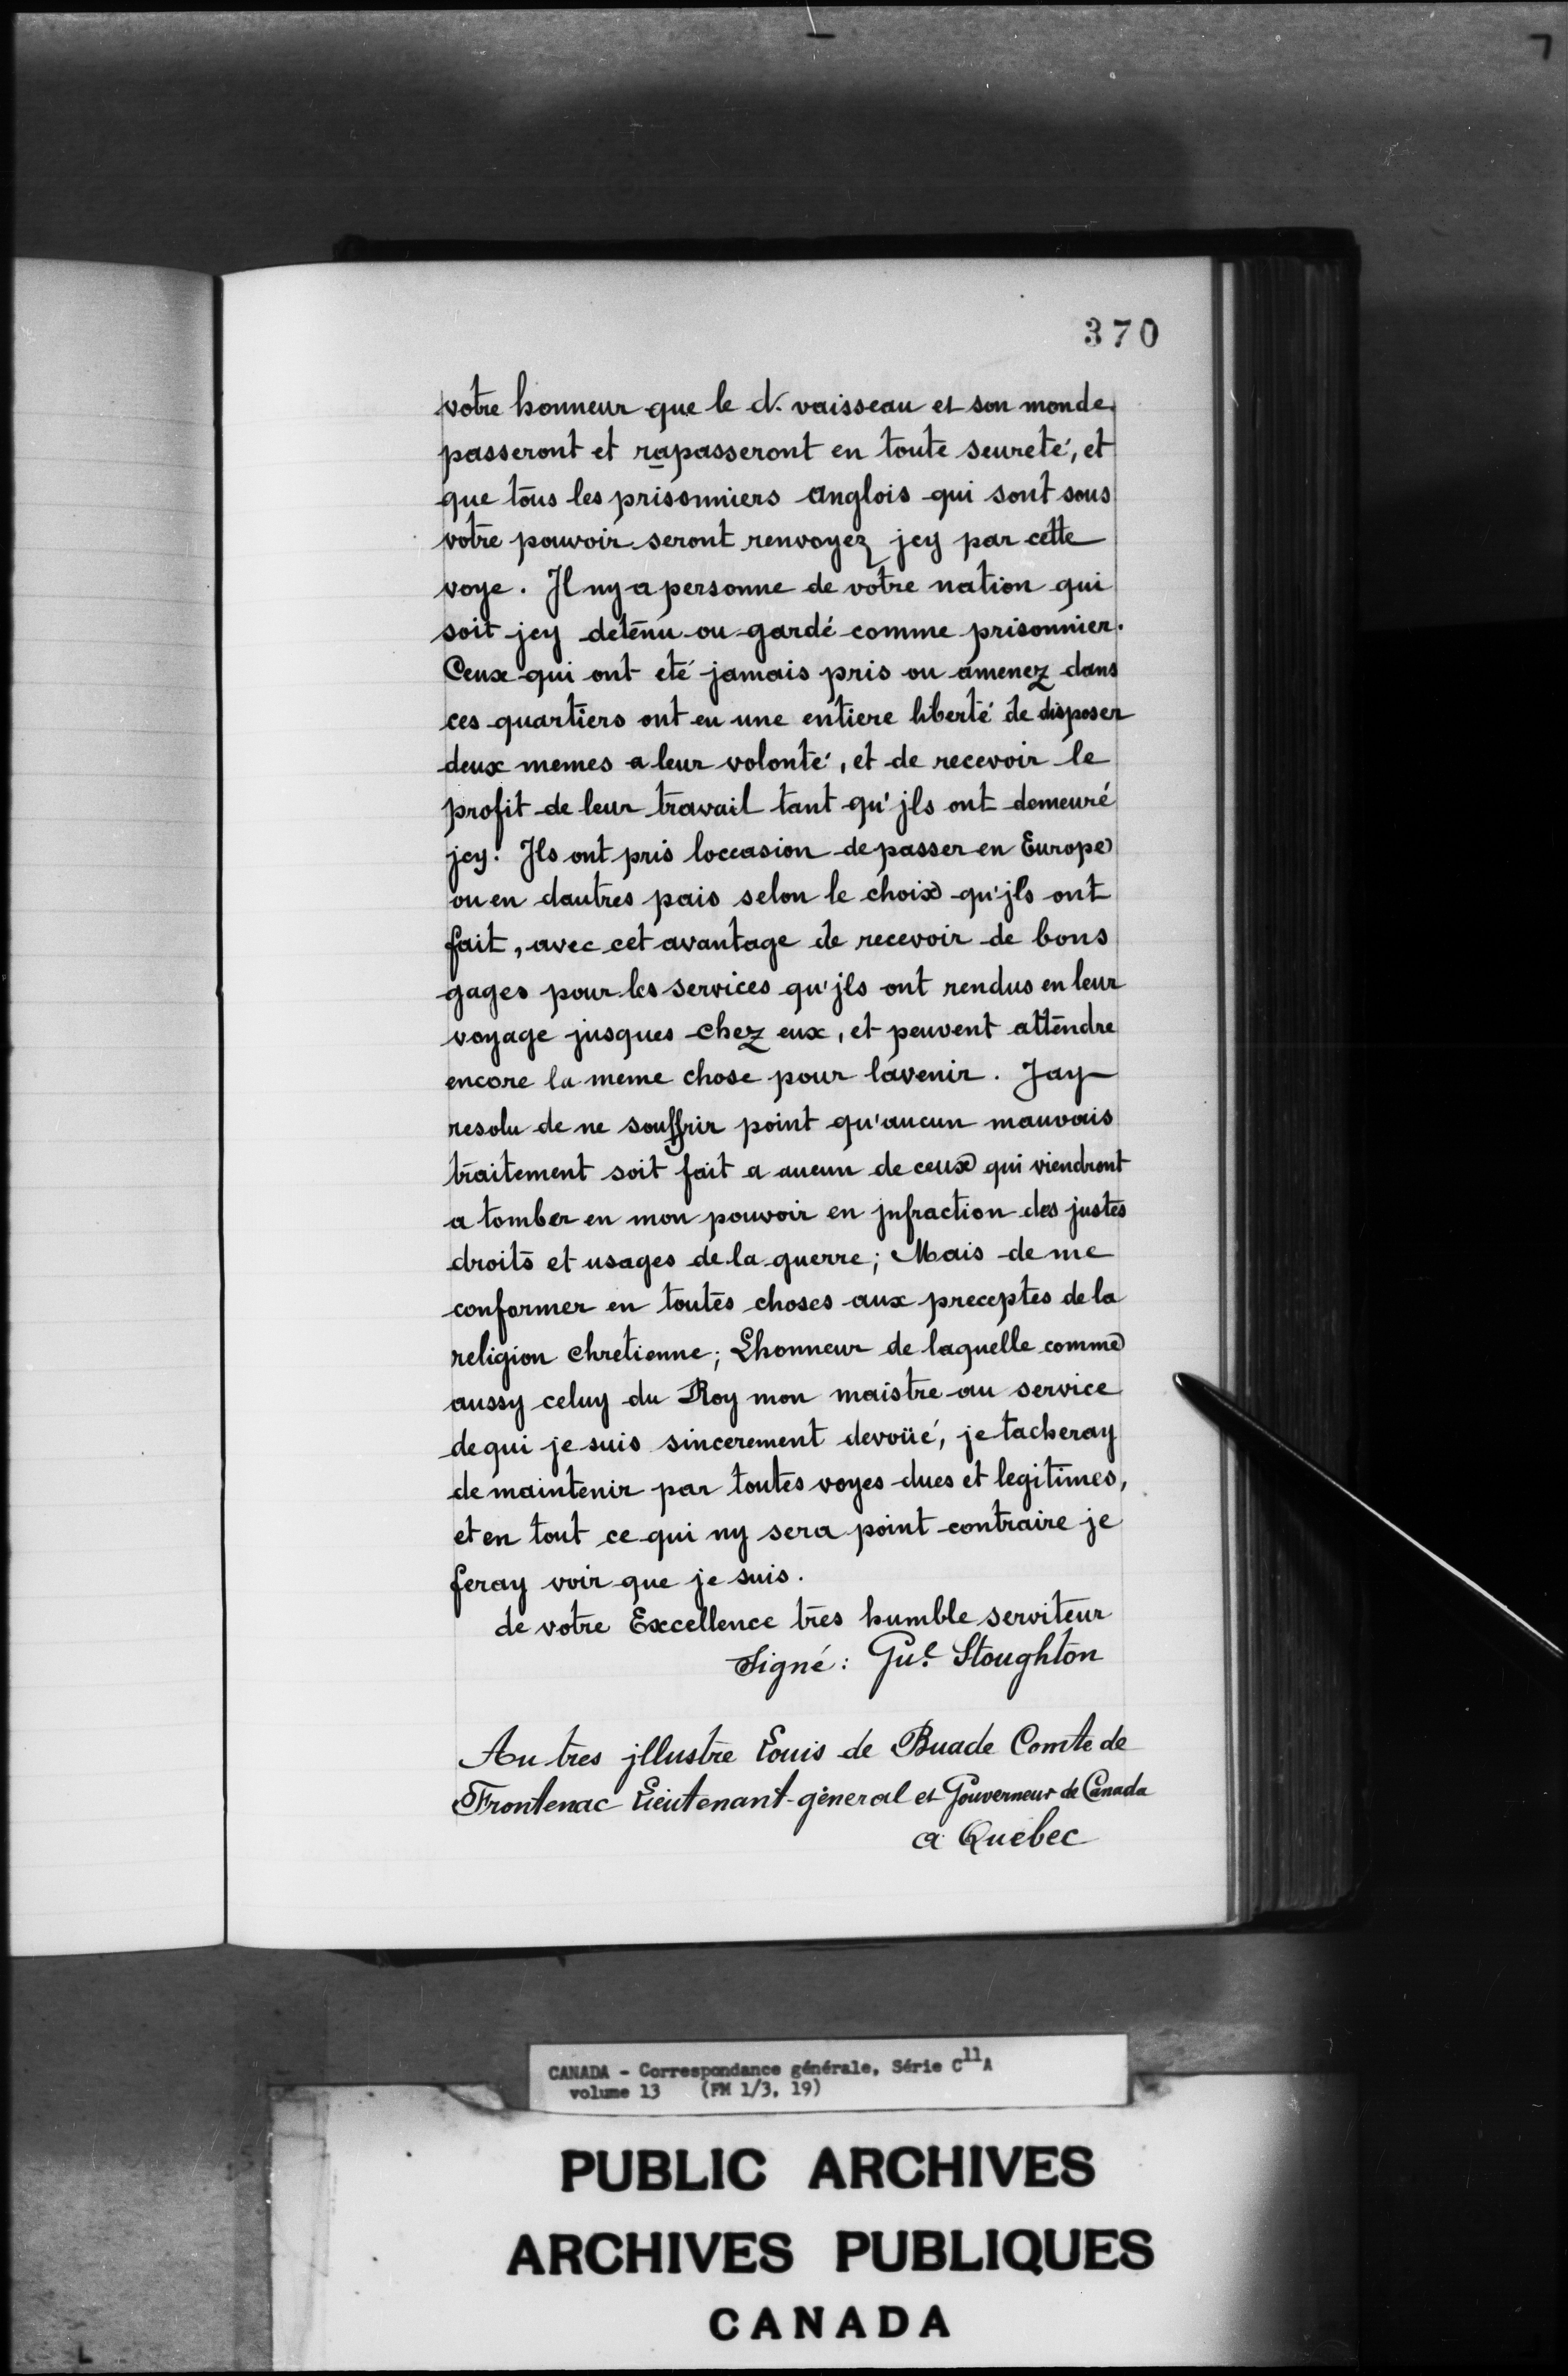 370
votre honneur que le d. vaisseau et son monde
passeront et rapasseront en toute seureté, et
que tous les prisonniers anglois qui sont sous
votre pouvoir seront renvoyez jcy par cette
voye. Il ny a personne de votre nation qui
soit jcy detenu ou gardé comme prisonnier.
Ceux qui ont eté jamais pris ou amenez dans
ces quartiers ont eu une entiere liberté de disposer
deux memes a leur volonté, et de recevoir le
profit de leur travail tant qu'jls ont demeuré
jcy. Ils ont pris loccasion de passer en Europe
ou en dautres pais selon le choix qu'jls ont
fait, avec cet avantage de recevoir de bons
gages pour les services qu'jls ont rendus en leur
voyage jusques chez eux, et peuvent attendre
encore la meme chose pour lavenir. Jay
resolu de ne souffrir point qu'aucun mauvais
traitement soit fait a aucun de ceux qui viendront
a tomber en mon pouvoir en jnfraction des justes
droits et usages de la guerre; Mais de me
conformer en toutes choses aux preceptes de la
religion chretienne; Lhonneur de laquelle comme
aussy celuy du Roy mon maistre au service
de qui je suis sincerement devoüé, je tacheray
de maintenir par toutes voyes dues et legitimes,
et en tout ce qui ny sera point contraire je
feray voir que je suis.
de votre Excellence tres humble serviteur
Signé: Gul. Stoughton
Au tres jllustre Louis de Buade Comte de
Frontenac Lieutenant-general et Gouverneur de Canada
a Quebec
CANADA - Correspondance générale, Série C11A
volume 13 (FM 1/3, 19)
PUBLIC ARCHIVES
ARCHIVES PUBLIQUES
CANADA